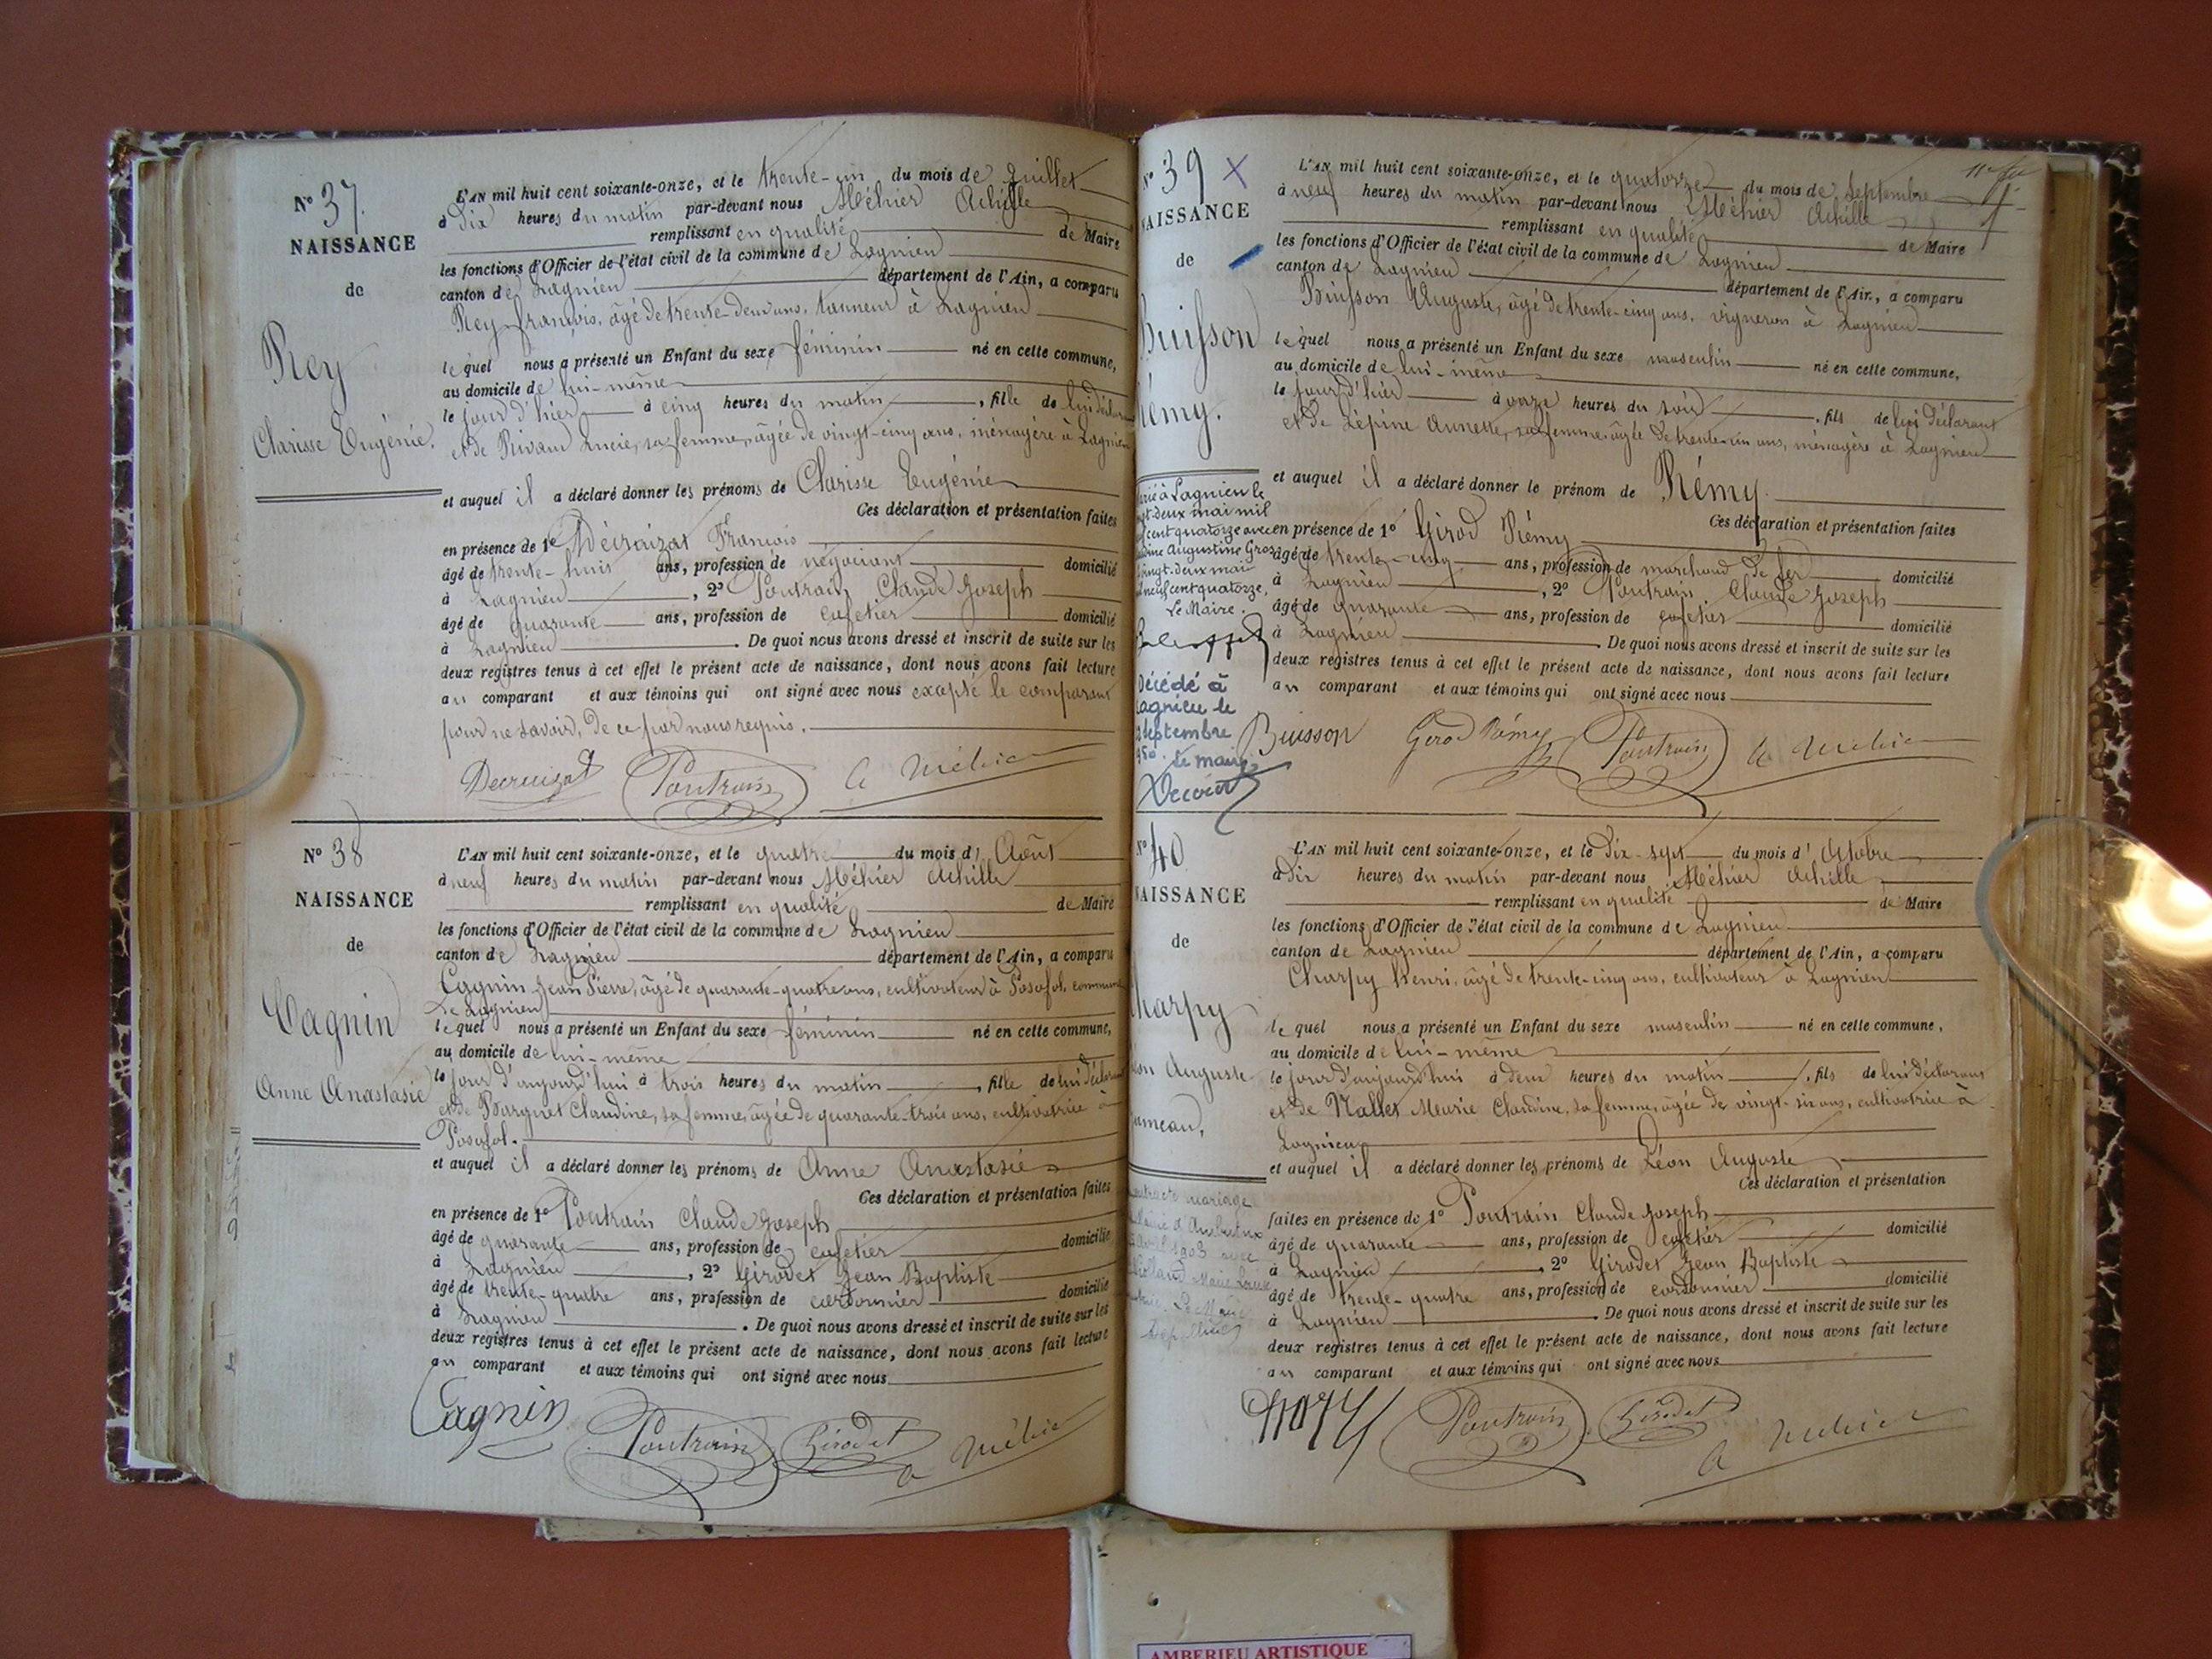 N° 37.
NAISSANCE
de
Rey
Clarisse Eugénie.
L'AN mil huit cent soixante-onze, et le trente-un du mois de Juillet
à Dix heures du matin par-devant nous Méhier Achille
remplissant en qualité de Maire
les fonctions d'Officier de l'état civil de la commune de Lagnieu
canton de Lagnieu département de l'Ain, a comparu
Rey François, âgé de trente-deux ans, tanneur à Lagnieu
lequel nous a présenté un Enfant du sexe féminin né en cette commune,
au domicile de lui-même
le jour d'hier à cinq heures du matin, fille de lui déclarant
et de Lucie, sa femme, âgée de vingt-cinq ans, ménagère à Lagnieu
et auquel il a déclaré donner les prénoms de Clarisse Eugénie
Ces déclaration et présentation faites
en présence de 1° François
âgé de trente-huit ans, profession de négociant domicilié
à Lagnieu, 2° Poutrain Claude Joseph
âgé de quarante ans, profession de cafetier domicilié
à Lagnieu. De quoi nous avons dressé et inscrit de suite sur les
deux registres tenus à cet effet le présent acte de naissance, dont nous avons fait lecture
au comparant et aux témoins qui ont signé avec nous excepté le comparant
pour ne savoir, de ce par nous requis.
Decruizat Poutrain A Méhier
N° 38
NAISSANCE
de
Cagnin
Anne Anastasie
L'AN mil huit cent soixante-onze, et le quatre du mois d' Août
à neuf heures du matin par-devant nous Méhier Achille
remplissant en qualité de Maire
les fonctions d'Officier de l'état civil de la commune de Lagnieu
canton de Lagnieu département de l'Ain, a comparu
Cagnin Jean Pierre, âgé de quarante-quatre ans, cultivateur à Posafol, commune
de Lagnieu
lequel nous a présenté un Enfant du sexe féminin né en cette commune,
au domicile de lui-même
le jour d'aujourd'hui à trois heures du matin, fille de lui déclarant
et de Claudine, sa femme, âgée de quarante-trois ans, cultivatrice à
Posafol.
et auquel il a déclaré donner les prénoms de Anne Anastasie
Ces déclaration et présentation faites
en présence de 1° Poutrain Claude Joseph
âgé de quarante ans, profession de cafetier domicilié
à Lagnieu, 2° Girodet Jean Baptiste
âgé de trente-quatre ans, profession de cordonnier domicilié
à Lagnieu. De quoi nous avons dressé et inscrit de suite sur les
deux registres tenus à cet effet le présent acte de naissance, dont nous avons fait lecture
au comparant et aux témoins qui ont signé avec nous
Cagnin Poutrain Girodet A Méhier
N° 39 X
NAISSANCE
de
Buisson
Rémy.
L'AN mil huit cent soixante-onze, et le quatorze du mois de Septembre
à neuf heures du matin par-devant nous Méhier Achille
remplissant en qualité de Maire
les fonctions d'Officier de l'état civil de la commune de Lagnieu
canton de Lagnieu département de l'Ain, a comparu
Buisson Auguste, âgé de trente-cinq ans, vigneron à Lagnieu
lequel nous a présenté un Enfant du sexe masculin né en cette commune,
au domicile de lui-même
le jour d'hier à onze heures du soir, fils de lui déclarant
et de Lépine Annette, sa femme, âgée de trente-un ans, ménagère à Lagnieu
et auquel il a déclaré donner le prénom de Rémy.
Ces déclaration et présentation faites
en présence de 1° Girod Rémy
âgé de trente-cinq ans, profession de marchand de fer domicilié
à Lagnieu, 2° Poutrain Claude Joseph
âgé de quarante ans, profession de cafetier domicilié
à Lagnieu. De quoi nous avons dressé et inscrit de suite sur les
deux registres tenus à cet effet le présent acte de naissance, dont nous avons fait lecture
au comparant et aux témoins qui ont signé avec nous
Buisson Girod Rémy Poutrain A Méhier
à Lagnieu le
deux mai mil
cent quatorze avec
Augustine Gros
vingt-deux mai
neuf cent quatorze,
Le Maire.
Décédé à
Lagnieu le
septembre
Le maire
N° 40
NAISSANCE
de
Charpy
Léon Auguste
jumeau,
L'AN mil huit cent soixante-onze, et le Dix-sept du mois d' Octobre
à Dix heures du matin par-devant nous Méhier Achille
remplissant en qualité de Maire
les fonctions d'Officier de l'état civil de la commune de Lagnieu
canton de Lagnieu département de l'Ain, a comparu
Charpy Henri, âgé de trente-cinq ans, cultivateur à Lagnieu
lequel nous a présenté un Enfant du sexe masculin né en cette commune,
au domicile de lui-même
le jour d'aujourd'hui à deux heures du matin, fils de lui déclarant
et de Nallet Marie Claudine, sa femme, âgée de vingt-six ans, cultivatrice à
Lagnieu
et auquel il a déclaré donner les prénoms de Léon Auguste
Ces déclaration et présentation
faites en présence de 1° Poutrain Claude Joseph
âgé de quarante ans, profession de cafetier domicilié
à Lagnieu, 2° Girodet Jean Baptiste
âgé de trente-quatre ans, profession de cordonnier domicilié
à Lagnieu. De quoi nous avons dressé et inscrit de suite sur les
deux registres tenus à cet effet le présent acte de naissance, dont nous avons fait lecture
au comparant et aux témoins qui ont signé avec nous
Poutrain Girodet A Méhier
mariage
1903 avec
Marie Louise
Le Maire
AMBERIEU ARTISTIQUE